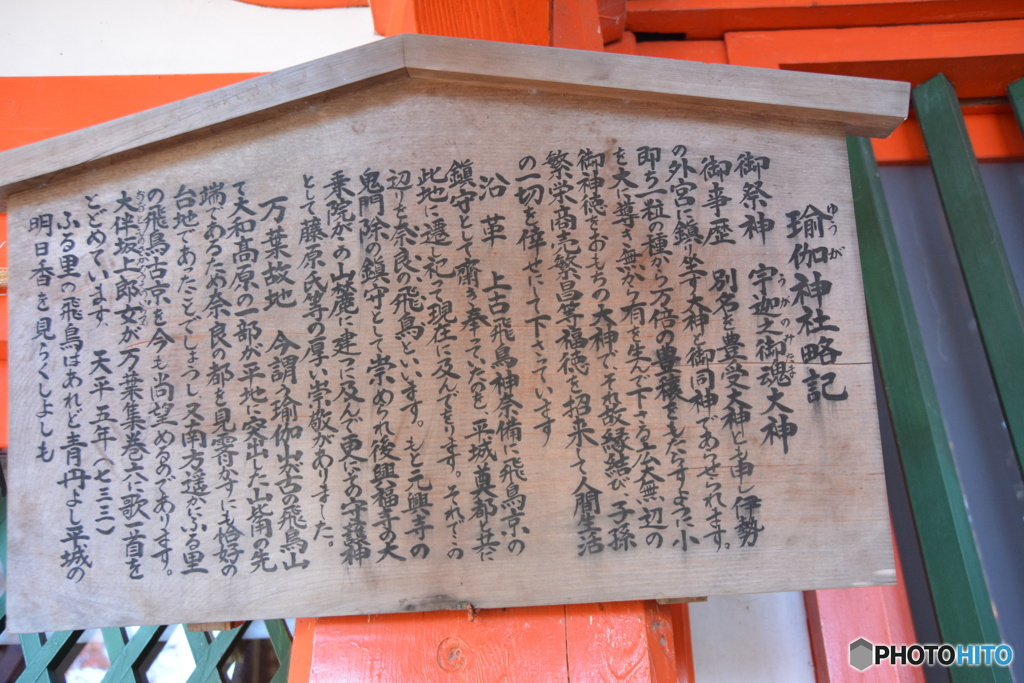 瑜伽神社略記
ゆうが
御祭神　宇迦之御魂大神
うがのみたま
御事歴　別名を豊受大神とも申し伊勢
の外宮に鎮り坐す大神と御同神であらせられます。
即ち一粒の種から万倍の豊穣をもたらすように小
を大に導き無から有を生んで下さる広大無辺の
御神徳をおもちの大神でそれ故縁結び子孫
繁栄商売繁昌等福徳を招来して人間生活
の一切を倖せにして下さっています
沿革　上古飛鳥神奈備に飛鳥京の
鎮守として齋き奉ていたのを平城奠都と共に
此地に遷し祀って現在に及んでをります。それでこの
辺りを奈良の飛鳥といいます。もと元興寺の
鬼門除の鎮守として崇められ後興福寺の大
乗院がこの山麓に建つに及んで更にその守護神
として藤原氏等の厚い崇敬がありました。
万葉故地　今謂う瑜伽山が古の飛鳥山
で大和高原の一部が平地に突出した山背の先
端であるため奈良の都を見霽かすにも恰好の
台地であったことでしょうし又南方遥かにふる里
の飛鳥古京を今も尚望めるのであります。
大伴坂上郎女が万葉集巻六に歌一首を
とどめています　天平五年（七三三）
ふる里の飛鳥はあれど青丹よし平城の
明日香を見らくしよしも
PHOTOHITO